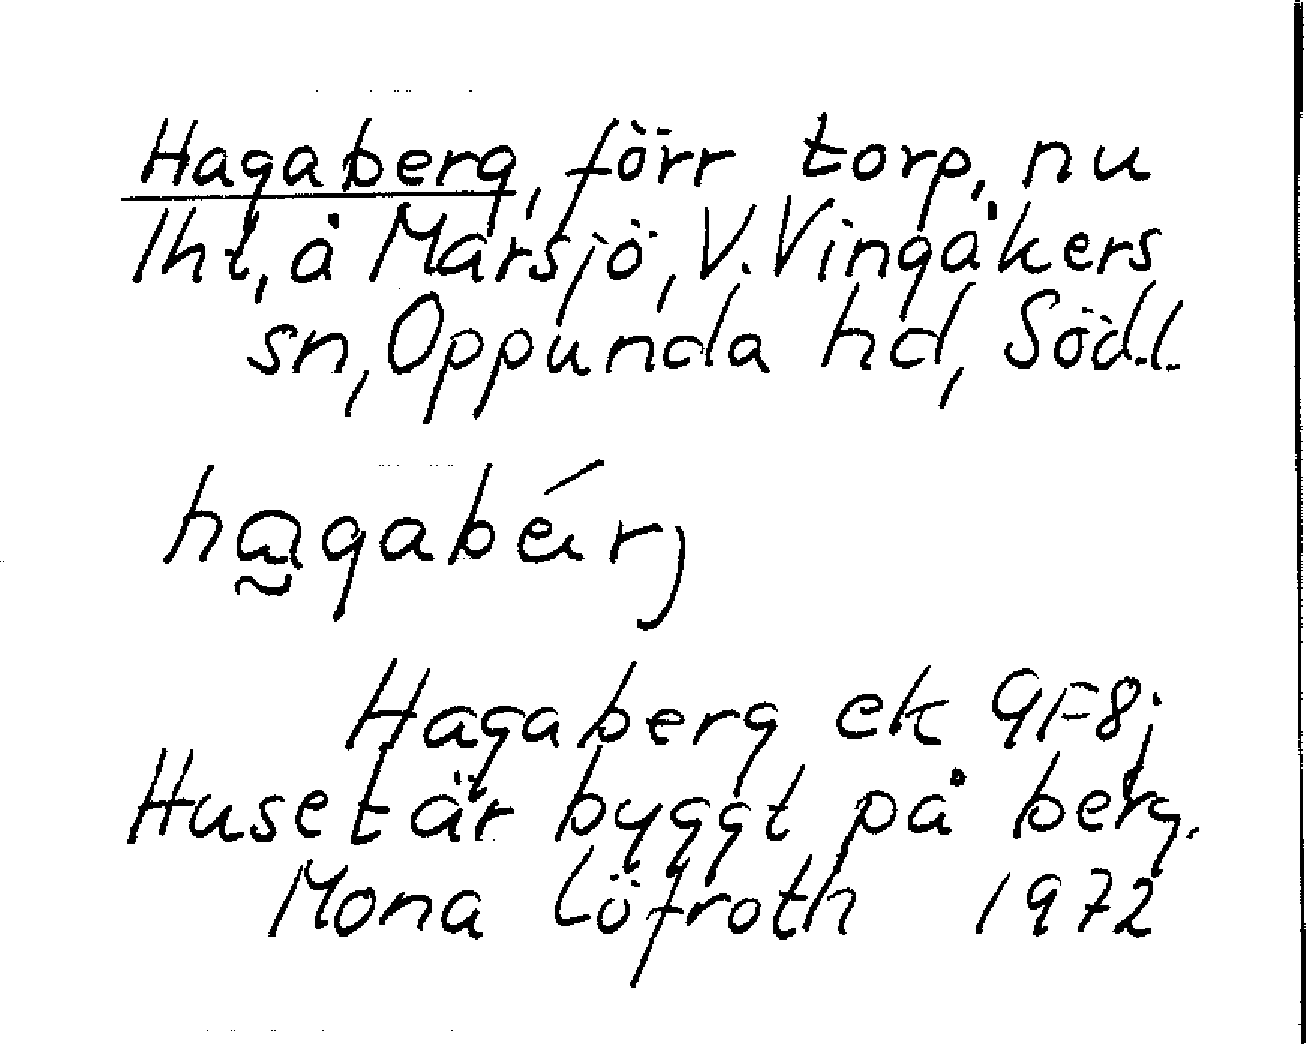 Hagaberg, förr torp, nu
lht, å Marsjö, V. Vingåkers
sn, Oppunda hd, Södl.
hagabärj
Hagaberg ek 9F8j
Huset är byggt på berg.
Mona Löfroth 1972